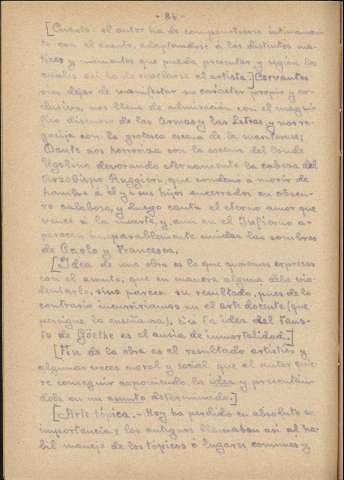 - 84 -
[Cuanto al autor ha de compenetrarse íntimamen-
te con el asunto, adaptandose á los distintos ma-
tices y momentos que pueda presentar y según los
cuales así ha de mostrarse el artista.] Cervantes
sin dejar de manifestar su carácter propio y ex-
clusivo, nos llena de admiración con el magní-
fico discurso de las Armas y las Letras, y nos re-
gocija con la grotesca escena de la manteamiento;
Dante nos horroriza con la escena del Conde
Ugolino devorando eternamente la cabeza del
Arzobispo Ruggieri, que condenó a morir de
hambre á él y sus hijos encerrados en obscu-
ro calabozo, y luego canta el eterno amor que
vence á la muerte, y, aun en el Infierno a-
parecen inseparablemente unidas las sombras
de Paolo y Francesca.
[Idea de una obra es lo que queremos expresar
con el asunto, que en manera alguna debe vio-
lentarlo, sino parece su resultado, pues de lo
contrario incurriríamos en el arte docente (que
persigue la enseñanza). Así la idea del Faus-
to de Göethe es el ansia de inmortalidad.]
[Fin de la obra es el resultado artístico y
algunas veces moral y social que el autor quie-
re conseguir exponiendo la idea y presentán-
dola en un asunto determinado.]
[Arte tópica. - Hoy ha perdido en absoluto su
importancia; los antiguos llamaban así al há-
bil manejo de los tópicos o lugares comunes y